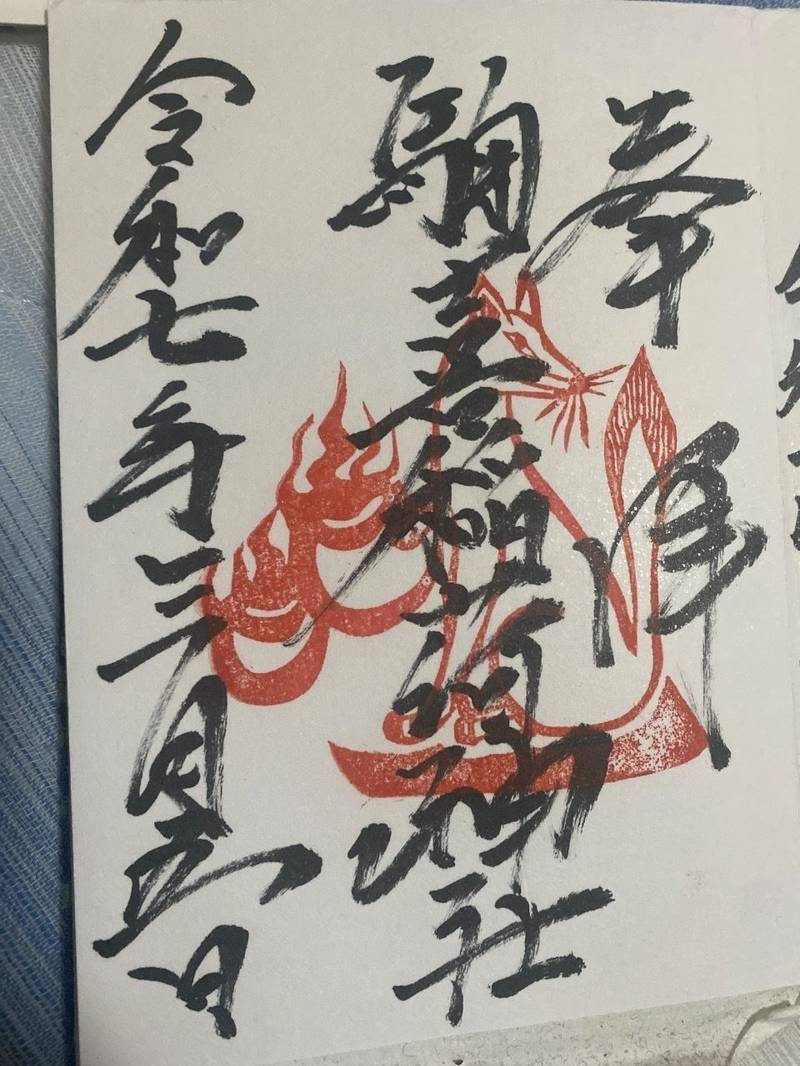 奉拝
稲荷神社
令和七年三月五日